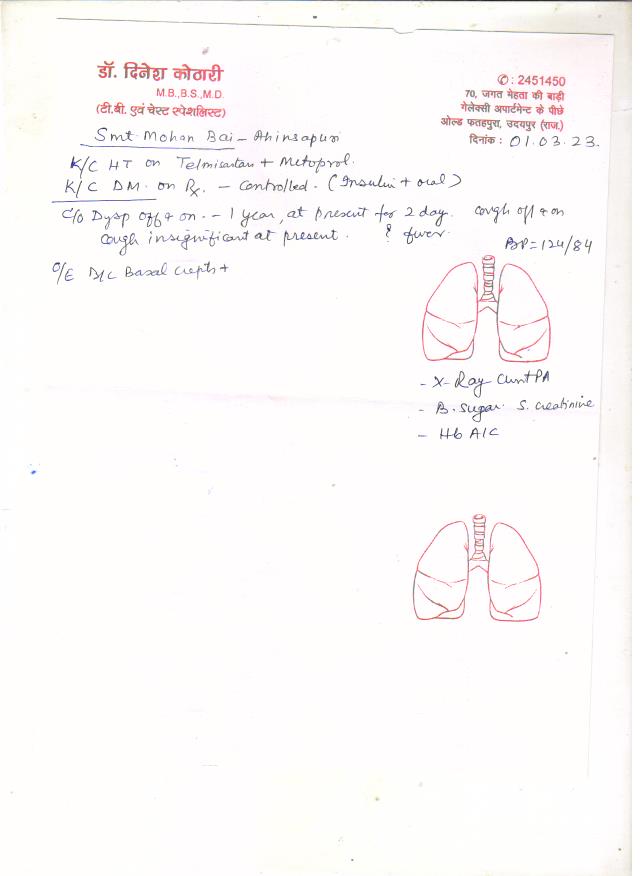 डॉ. दिनेश कोठारी
M.B.,B.S.,M.D.
(टी.बी. एवं चेस्ट स्पेशलिस्ट)
✆: 2451450
70, जगत मेहता की बाड़ी
गेलेक्सी अपार्टमेन्ट के पीछे
ओल्ड फतहपुरा, उदयपुर (राज.)
दिनांक : 01.03.23.
Smt Mohan Bai - Ahinsapuri
K/C HT on Telmisartan + Metoprol.
K/C DM. on Rx. - Controlled. (Insulin + oral)
C/o Dysp off & on. - 1 year, at present for 2 day. cough off & on
cough insignificant at present. ? fever.
BP = 124/84
O/E B/C Basal crepts +
- X-Ray Chest PA
- B. Sugar. S. creatinine
- Hb A1C